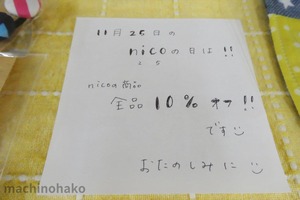 11月25日の
nicoの日は!!
2 5
nicoの商品
全品10%オフ!!
です
おたのしみに
machinohako